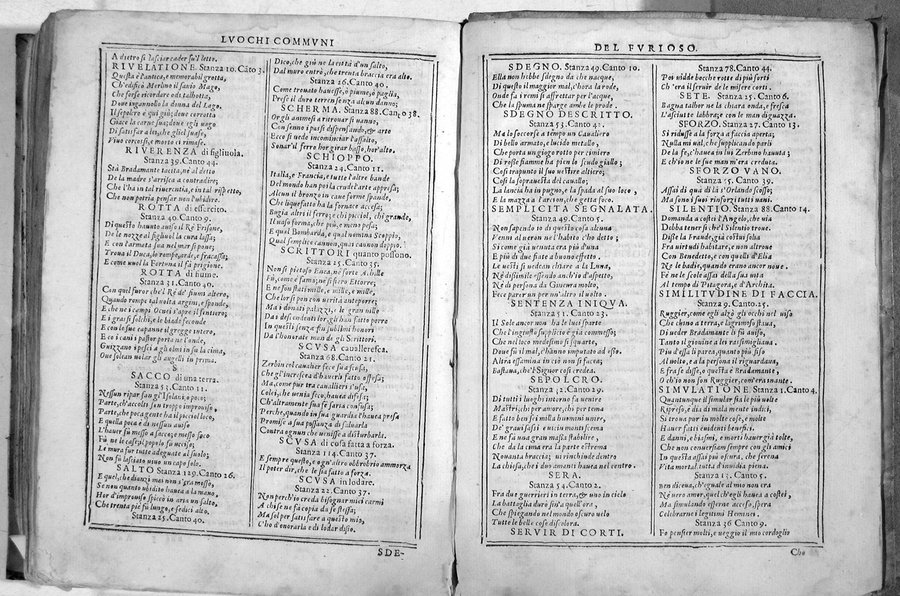 LVOCHI COMMVNI
A dietro si lascier cader su'l letto.
RIVELATIONE. Stanza 10. Cãto 3.
Questa è l'antica, e memorabil grotta,
Ch'edificò Merlino il savio Mago,
Che forse ricordar ode talhotta,
Dove ingannollo la donna del Lago.
Il sepolcro e qui giù; dove corrotta
Giace la carne sua; dove egli vago
Di satisfar a lei, che gliel suase,
Vivo corcossi, e morto ci rimase.
RIVERENZA di figliuola.
Stanza 39. Canto 44.
Stà Bradamante tacita, nè al detto
De la madre s'arrisca a contradire;
Che l'ha in tal riverentia, e in tal rispetto,
Che non potria pensar non l'ubidire.
ROTTA di essercito.
Stanza 40. Canto 9.
Di questo hauuto auiso il Rè Frisone,
De le nozze al figliuol la cura lassa;
E con l'armata sua nel mar si pone;
Troua il Duca, lo rompe, arde, e fracassa;
E come vuol la Fortuna il fà prigione.
ROTTA di fiume.
Stanza 31. Canto 40.
Con quel furor che'l Rè de' fiumi altero,
Quando rompe tal volta argini, e sponde,
E che ne i campi Ocnei s'apre il sentiero;
E i grassi solchi, e le biade feconde
E con le sue capanne il gregge intero,
E co i cani i pastor porta ne l'onde,
Guizzano i pesci a gli olmi in su la cima,
Oue solean volar gli augelli in prima.
S
SACCO di una terra.
Stanza 53. Canto 11.
Nessun ripar fan gl'Isolani, o poco;
Parte, ch'accolti son troppo improuiso,
Parte, che poca gente ha il picciol loco,
E quella poca è di nessun auiso
L'hauer fù messo a sacco; e messo foco
Fù ne le case; il popolo fu ucciso;
Le mura fur tutte adeguate al suolo;
Non fù lasciato uiuo un capo solo.
SALTO Stanza 129. Canto 26.
E quel, che dianzi mai non s'era messo,
Se non quanto ubidito hauea a la mano,
Hor d'improuiso spiccò in aria un salto,
Che trenta piè fù lungo, e sedici alto.
Stanza 25. Canto 40.
Dico, che giù ne la città d'un salto,
Dal muro entrò, che trenta braccia era alto.
Stanza 26. Canto 40.
Come trouato hauesse, ò piume, ò paglia,
Prese il duro terren senza alcun danno;
SCHERMA. Stanza 88. Can. 38.
Or gli animosi a ritrouar si uanno,
Con senno i pursi dispensando, & arte
Ecco si uede incominciar l'assalto,
Sonar'il ferro hor girar basso, hor'alto.
SCHIOPPO.
Stanza 24. Canto 11.
Italia, e Francia, e tutte l'altre bande
Del mondo han poi la crude l'arte appresa;
Alcun il bronzo in caue forme spande,
Che liquefatto ha la fornace accesa;
Bugia altri il ferro; e chi picciol, chi grande,
Il uaso forma, che più, e meno pesa;
E qual Bombarda, e qual nomina Scoppio,
Qual semplice cannon, qual cannon doppio.
SCRITTORI quanto possono.
Stanza 25. Canto 35.
Non sì pietoso Enea, nè forte Achille
Fù, come è fama; nè sì fiero Ettorre;
E ne son stati mille, e mille, e mille,
Che lor si pon con uerità anteporre;
Ma i donati palazzi, e le gran uille
Da i descendenti lor, gli han fatto porre
In questi senza fin sublimi honori
Da l'honorate man de gli Scrittori.
SCVSA caualleresca.
Stanza 68. Canto 21.
Zerbin col caualier fece sua scusa,
Che gl'incresceа d'hauerli fatto offesa;
Ma, come pur tra caualieri s'usa,
Colei, che uenia seco, hauea difesa;
Ch'altramente sua fè saria confusa;
Perche, quando in sua guardia l'hauea presa
Promise a sua possanza di saluarla
Contra ognun che uenisse a disturbarla.
SCVSA di cosa fatta a forza.
Stanza 114. Canto 37.
E sempre questo, e ogn'altro obbrobrio ammorza
Il poter dir, che le sia fatto a forza.
SCVSA in lodare.
Stanza 22. Canto 37.
Non perch'io creda bisognar miei carmi
A chi se ne fa copia da se stessa;
Ma sol per satisfare a questo mio,
C'ho d'onorarla e di lodar disio.
SDE-
DEL FVRIOSO.
SDEGNO. Stanza 49. Canto 10.
Ella non hebbe sdegno da che nacque,
Di questo il maggior mai, c'hora la rode,
Onde fa i remi sì affrettar per l'acque,
Che la spuma ne sparge ambe le prode.
SDEGNO DESCRITTO.
Stanza 53. Canto 42.
Ma lo soccorse a tempo un Caualiero
Di bello armato, e lucido metallo,
Che porta un giogo rotto per cimiero
Di rosse fiamme ha pien lo scudo giallo;
Così trapunto il suo uestire altiero;
Così la soprauesta del cauallo;
La lancia ha in pugno, e la spada al suo loco,
E la mazza a l'arcion, che getta foco.
SEMPLICITA SEGNALATA.
Stanza 49. Canto 5.
Non sapendo io di questo cosa alcuna
Venni al ueron ne l'habito c'ho detto;
Sì come già uenuta era più d'una
E più di due fiate a buono effetto.
Le uesti si uedean chiare a la Luna,
Nè dissimile essendo anch'io d'aspetto,
Nè di persona da Gineura molto,
Fece parer un per un'altro il uolto.
SENTENZA INIQVA.
Stanza 51. Canto 23.
Il Sole ancor non ha le luci sparte
Che l'ingiusto supplicio è già commesso;
Che nel loco medesimo si squarte,
Doue fù il mal, c'hanno imputato ad esso.
Altra essamina in ciò non si facea;
Bastaua, che'l Signor così credea.
SEPOLCRO.
Stanza 32. Canto 29.
Di tutti i luoghi intorno fa uenire
Mastri; chi per amore, chi per tema
E fatto ben sei mila huomini unire,
De' graui sassi e uicin monti scema
E ne fa una gran massa stabilire,
Che da la cima era la parte estrema
Nouanta braccia; ui rinchiude dentro
La chiesa, che i due amanti hauea nel centro.
SERA.
Stanza 54. Canto 2.
Fra due guerrieri in terra, & uno in cielo
La battaglia durò sin'a quell'ora,
Che spiegando nel mondo oscuro uelo
Tutte le belle cose discolora.
SERVIR DI CORTI.
Stanza 78. Canto 44.
Poi uidde bocche rotte di più sorti
Ch'era il seruir de le misere corti.
SETE. Stanza 25. Canto 6.
Bagna talhor ne la chiara onda, e fresca
L'asciutte labbra; e con le man diguazza.
SFORZO. Stanza 27. Canto 13.
Si ridusse a la forza a faccia aperta;
Nulla mi ual, che supplicando parli
De la fè, c'hauea in lui Zerbino hauuta;
E ch'io ne le sue man m'era creduta.
SFORZO VANO.
Stanza 25. Canto 39.
Assai di quà di là s'Orlando scosse;
Ma sono i suoi risforzi tutti uani.
SILENTIO. Stanza 88. Canto 14.
Domanda a costei l'Angelo, che uia
Debba tener sì che'l Silentio troue.
Disse la Fraude, già costui solia
Fra uirtudi habitare, e non altroue
Con Benedetto, e con quelli d'Elia
Ne le badie, quando erano ancor noue.
Fè ne le scole assai della sua uita
Al tempo di Pitagora, e d'Archita.
SIMILITVDINE DI FACCIA.
Stanza 9. Canto 25.
Ruggier, come egli alzò gli occhi nel uiso
Che chino a terra, e lagrimoso staua,
Di ueder Bradamante li fù auiso,
Tanto il giouine a lei rassimigliaua.
Più d'essa li parea, quanto più fiso
Al uolto, e a la persona il riguardaua,
E fra se disse, questa è Bradamante,
O ch'io non son Ruggier, com'era inante.
SIMVLATIONE. Stanza 1. Canto 4.
Quantunque il simular sia le più uolte
Ripreso, e dia di mala mente indici,
Si troua pur in molte cose, e molte
Hauer fatti euidenti benefici.
E danni, e biasmi, e morti hauer già tolte,
Che non conuersiam sempre con gli amici
In questa assai più oscura, che serena
Vita mortal, tutta d'inuidia piena.
Stanza 13. Canto 5.
ben diceua, ch'eguale al mio non era
Nè uero amor, quel ch'egli hauea a costei,
Ma simulando d'esserne acceso, spera
Celebrarne i legitimi Hemenei.
Stanza 36 Canto 9.
Fo pensier molti, e ueggio il mio cordoglio
Che